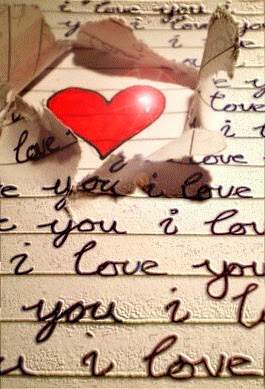 i love you i
i love
i love
e y
love
i
love
love
e you i love
e you i love
i love you
you i
u i love